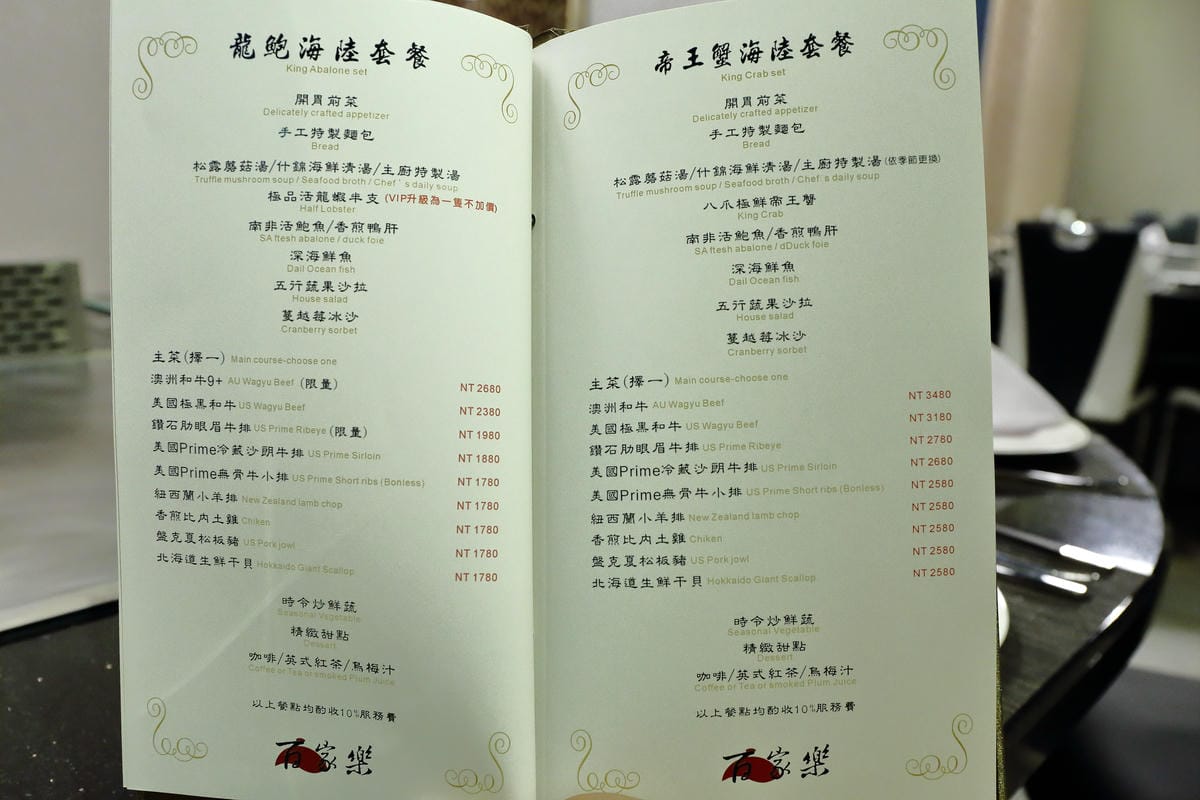 龍鮑海陸套餐
King Abalone set
開胃前菜
Delicately crafted appetizer
手工特製麵包
Bread
松露蘑菇湯/什錦海鮮清湯/主廚特製湯
Truffle mushroom soup / Seafood broth / Chef's daily soup
極品活龍蝦半支 (VIP升級為一隻不加價)
Half Lobster
南非活鮑魚/香煎鴨肝
SA ftesh abalone / duck foie
深海鮮魚
Dail Ocean fish
五行蔬果沙拉
House salad
蔓越莓冰沙
Cranberry sorbet
主菜(擇一) Main course-choose one
澳洲和牛9+ AU Wagyu Beef (限量) NT 2680
美國極黑和牛 US Wagyu Beef NT 2380
鑽石肋眼眉牛排 US Prime Ribeye (限量) NT 1980
美國Prime冷藏沙朗牛排 US Prime Sirloin NT 1880
美國Prime無骨牛小排 US Prime Short ribs (Bonless) NT 1780
紐西蘭小羊排 New Zealand lamb chop NT 1780
香煎比內土雞 Chiken NT 1780
盤克夏松板豬 US Pork jowl NT 1780
北海道生鮮干貝 Hokkaido Giant Scallop NT 1780
時令炒鮮蔬
Seasonal Vegetable
精緻甜點
Dessert
咖啡/英式紅茶/烏梅汁
Coffee or Tea or smoked Plum Juice
以上餐點均酌收10%服務費
百家樂
帝王蟹海陸套餐
King Crab set
開胃前菜
Delicately crafted appetizer
手工特製麵包
Bread
松露蘑菇湯/什錦海鮮清湯/主廚特製湯(依季節更換)
Truffle mushroom soup / Seafood broth / Chef's daily soup
八爪極鮮帝王蟹
King Crab
南非活鮑魚/香煎鴨肝
SA ftesh abalone / dDuck foie
深海鮮魚
Dail Ocean fish
五行蔬果沙拉
House salad
蔓越莓冰沙
Cranberry sorbet
主菜(擇一) Main course-choose one
澳洲和牛 AU Wagyu Beef NT 3480
美國極黑和牛 US Wagyu Beef NT 3180
鑽石肋眼眉牛排 US Prime Ribeye NT 2780
美國Prime冷藏沙朗牛排 US Prime Sirloin NT 2680
美國Prime無骨牛小排 US Prime Short ribs (Bonless) NT 2580
紐西蘭小羊排 New Zealand lamb chop NT 2580
香煎比內土雞 Chiken NT 2580
盤克夏松板豬 US Pork jowl NT 2580
北海道生鮮干貝 Hokkaido Giant Scallop NT 2580
時令炒鮮蔬
Seasonal Vegetable
精緻甜點
Dessert
咖啡/英式紅茶/烏梅汁
Coffee or Tea or smoked Plum Juice
以上餐點均酌收10%服務費
百家樂